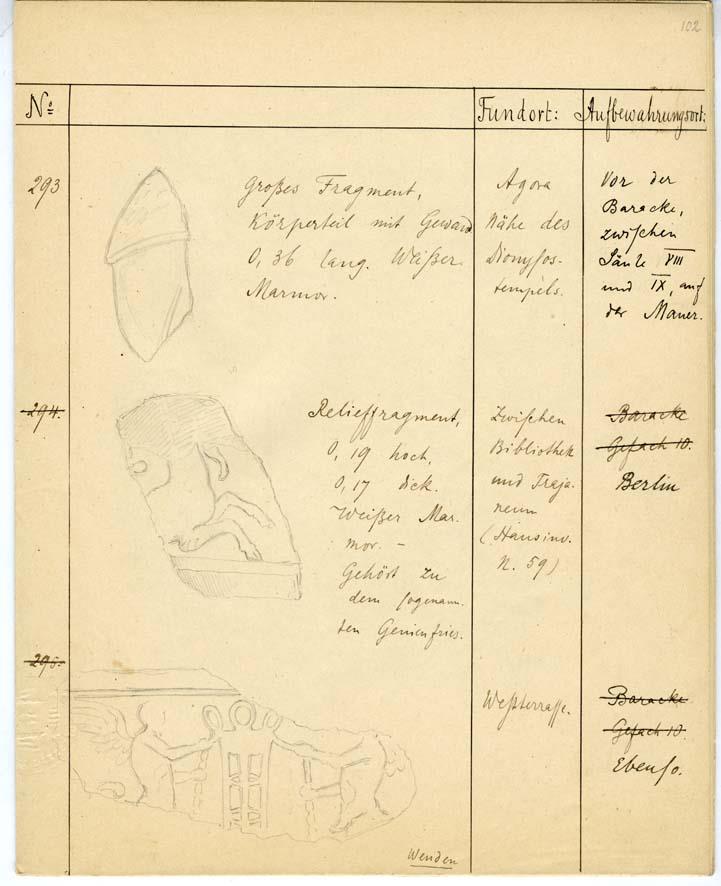 102
No
Fundort:
Aufbewahrungsort:
293
Großes Fragment,
Körperteil mit Gewand
0,36 lang. Weißer
Marmor.
Agora
Nähe des
Dionysos-
tempels.
Vor der
Baracke,
zwischen
Säule VIII
und IX, auf
der Mauer.
294.
Relieffragment,
0,19 hoch,
0,17 dick.
Weißer Mar-
mor. –
Gehört zu
dem sogenann-
ten Genienfries.
Zwischen
Bibliothek
und Traja-
neum
(Hausinv.
N. 59)
Baracke
Gefach 10.
Berlin
295.
Westterrasse.
Baracke
Gefach 10.
Ebenso.
Wenden